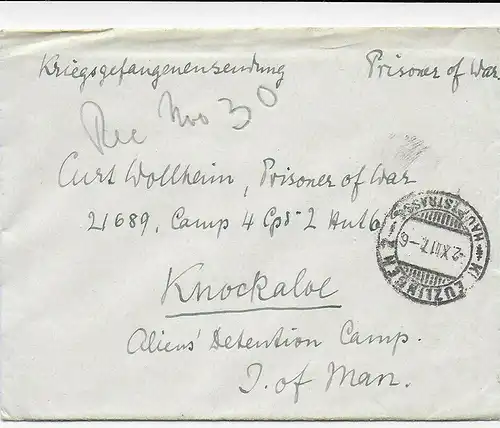 Kriegsgefangenensendung Prisoner of War
Rec Nov 30
Curt Wollheim, Prisoner of War
21689, Camp 4 Cpd-2 Hut 6
Knockaloe
Aliens' Detention Camp.
I. of Man.
KREUZLINGEN 2
HAUPTSTRASSE
2.XI.17.-6